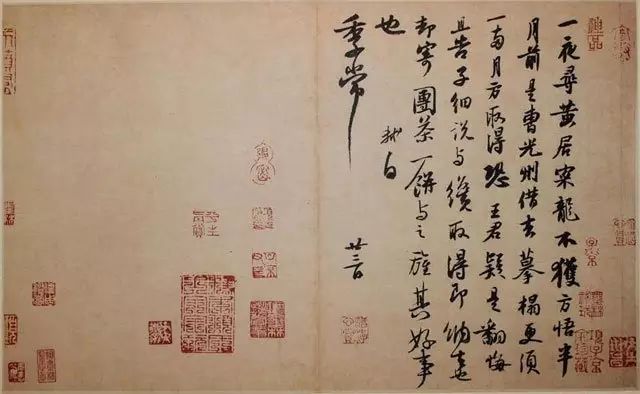 一夜尋黃居寀龍不獲方悟半
月前是曹光州借去摹搨更須
一兩月方取得恐王君疑是翻悔
且告子細說與纔取得即納去也
却寄團茶一餅與之旌其好事
也
軾白
季常
廿三日
神品